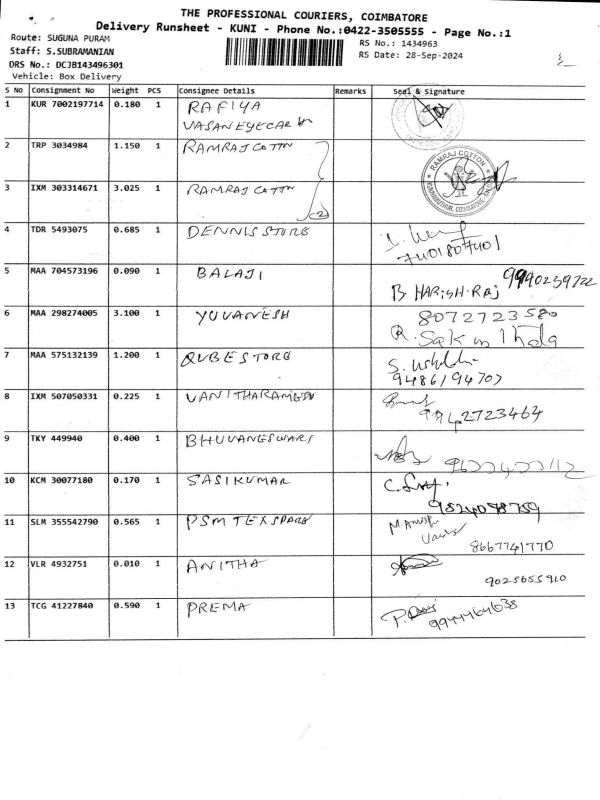 THE PROFESSIONAL COURIERS, COIMBATORE
Delivery Runsheet - KUNI - Phone No.:0422-3505555 - Page No.:1
Route: SUGUNA PURAM
Staff: S.SUBRAMANIAN
DRS No.: DCJB143496301
Vehicle: Box Delivery
RS No.: 1434963
RS Date: 28-Sep-2024
S No Consignment No Weight PCS Consignee Details Remarks Seal & Signature
1 KUR 7002197714 0.180 1 RAFIYA
VASANEYECAR
2 TRP 3034984 1.150 1 RAMRAJ COTTON
3 IXM 303314671 3.025 1 RAMRAJ COTTON (2)
RAMRAJ COTTON
4 TDR 5493075 0.685 1 DENNIS STORE
7401807401
5 MAA 704573196 0.090 1 BALAJI 9940239722
B HARISH.RAJ
6 MAA 298274005 3.100 1 YUVANESH 8072723580
7 MAA 575132139 1.200 1 QUBESTORE
9486194707
8 IXM 507050331 0.225 1 VANITHARAMESH
9942723464
9 TKY 449940 0.400 1 BHUVANESWARI
10 KCM 30077180 0.170 1 SASIKUMAR
11 SLM 355542790 0.565 1 PSM TEXSPARS
8667741770
12 VLR 4932751 0.010 1 ANITHA
9025655910
13 TCG 41227840 0.590 1 PREMA
9944464638